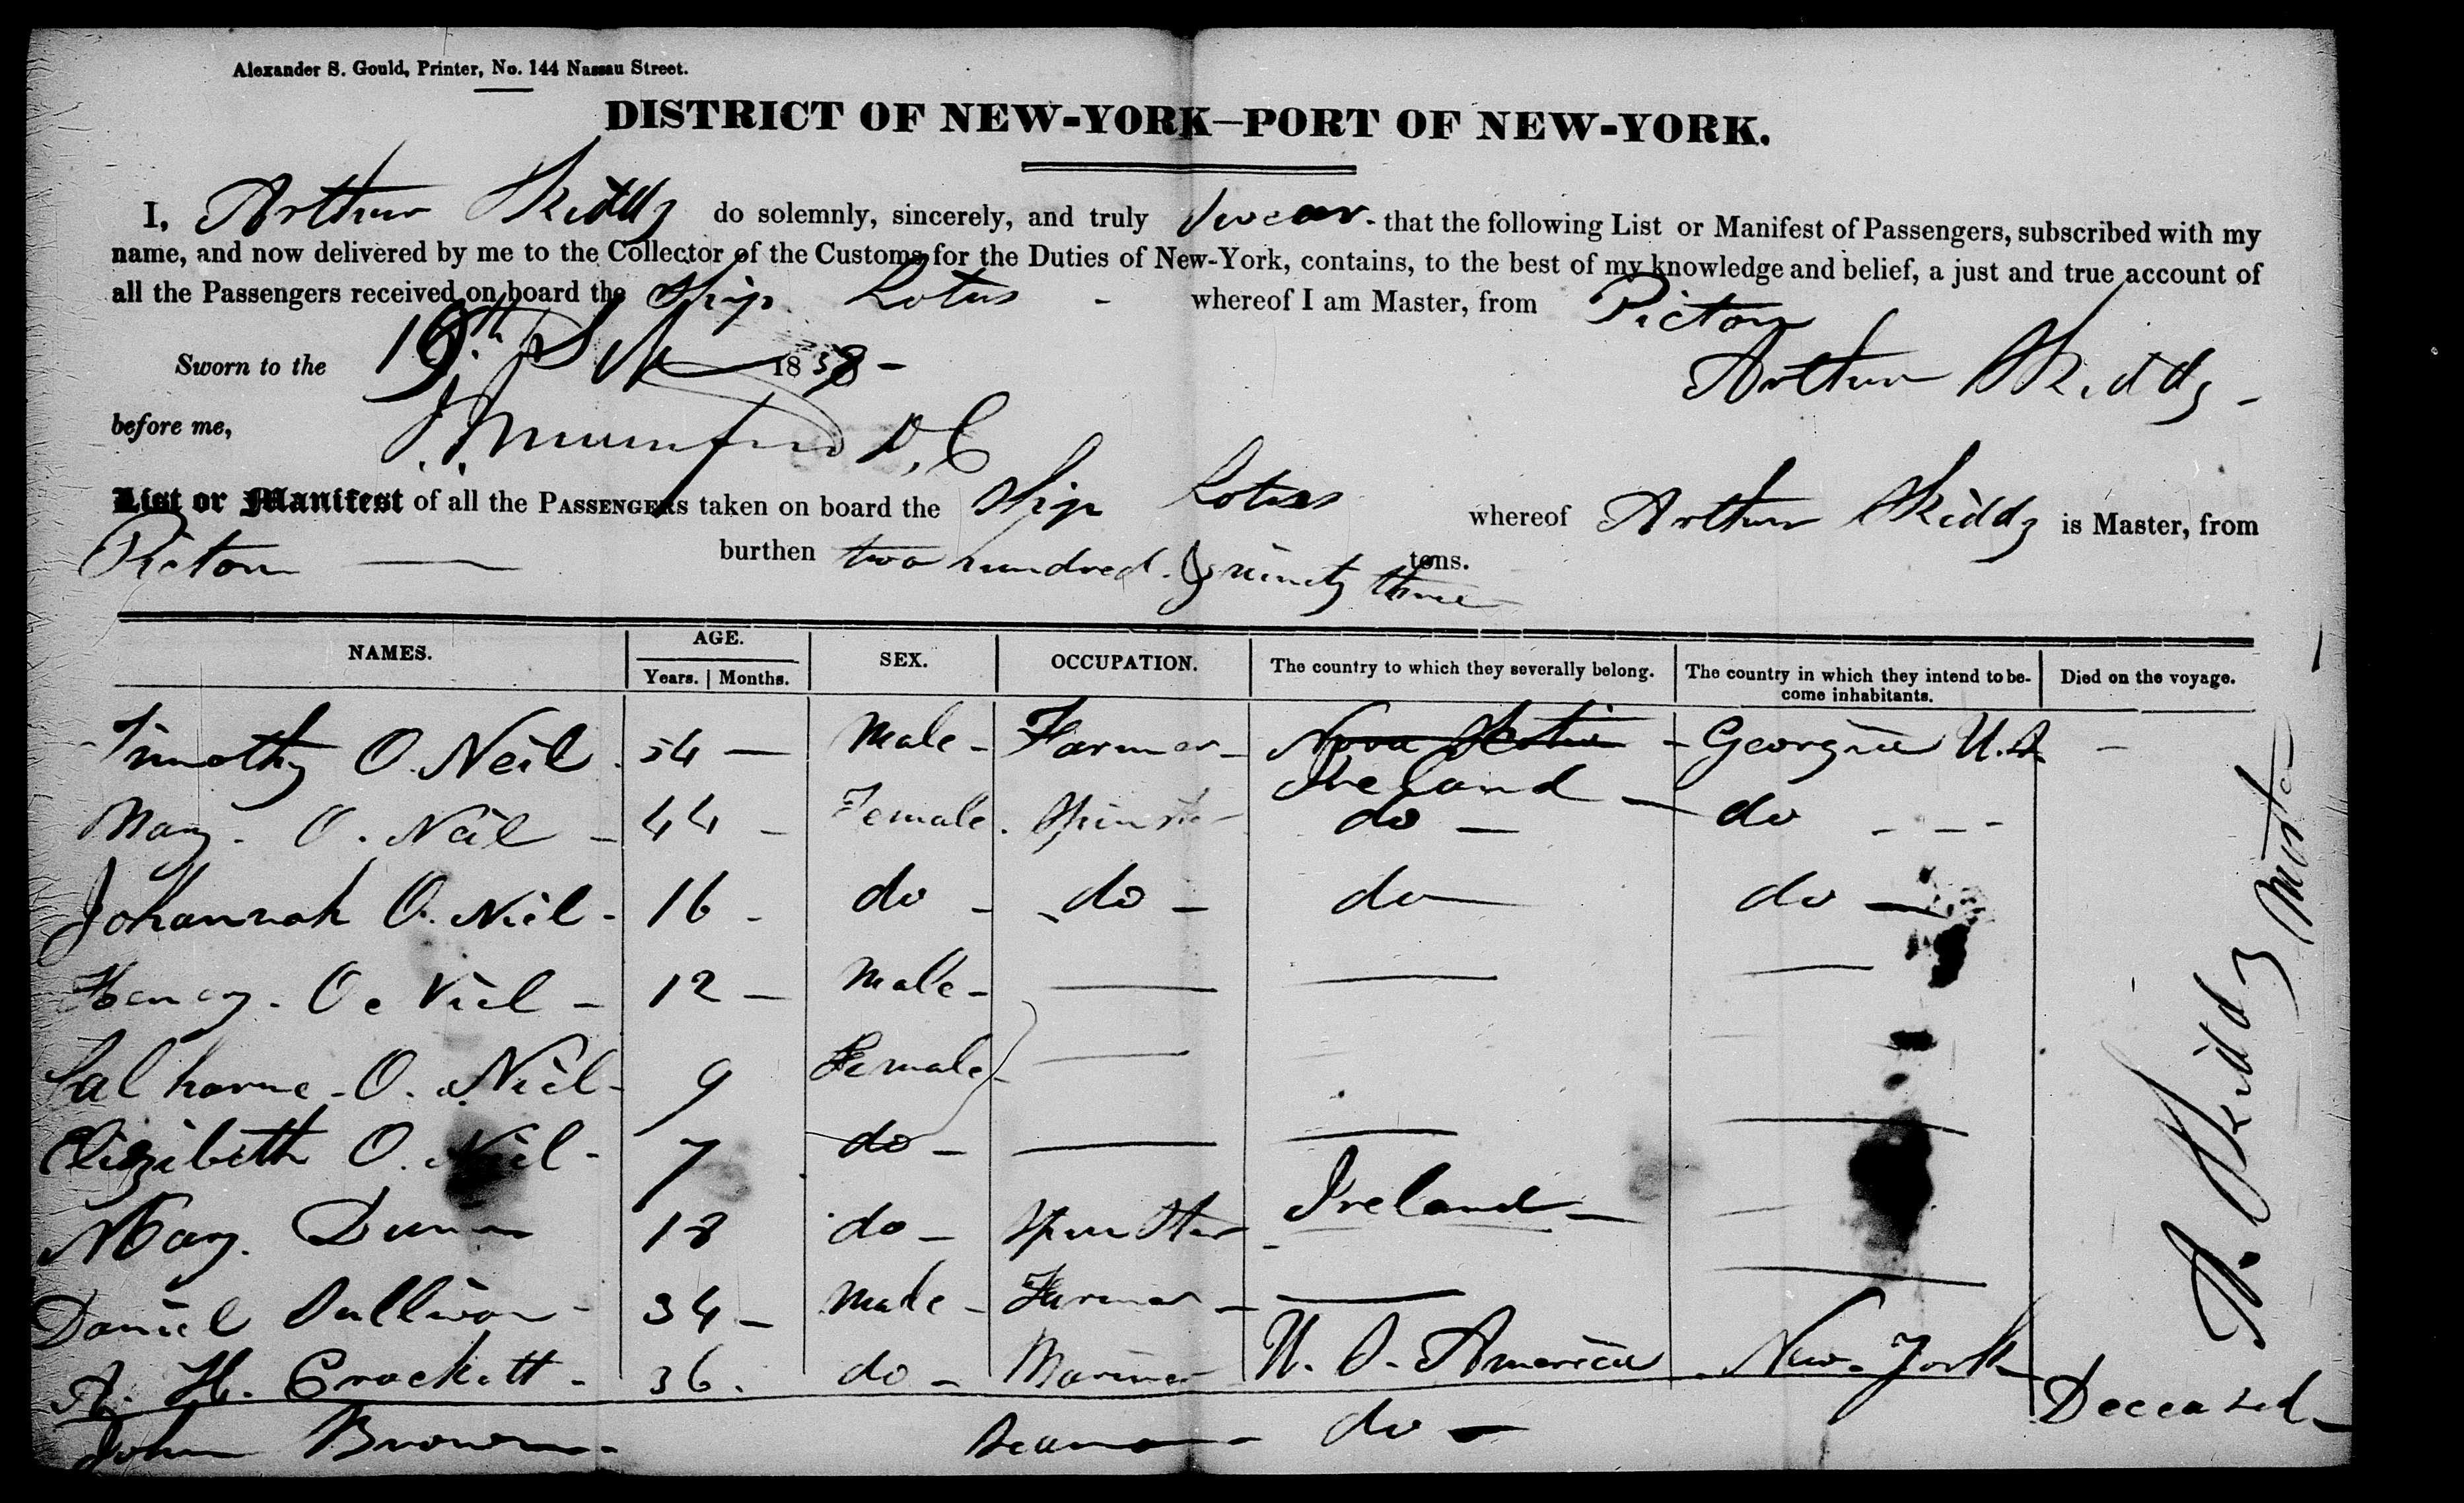 Alexander S. Gould, Printer, No. 144 Nassau Street.
DISTRICT OF NEW-YORK—PORT OF NEW-YORK.
I, Arthur Skiddy do solemnly, sincerely, and truly swear - that the following List or Manifest of Passengers, subscribed with my
name, and now delivered by me to the Collector of the Customs for the Duties of New-York, contains, to the best of my knowledge and belief, a just and true account of
all the Passengers received on board the Ship Lotus - whereof I am Master, from Pictou
Sworn to the 19th 1838 - Arthur Skiddy -
before me, D.C
List or Manifest of all the PASSENGERS taken on board the Ship Lotus whereof Arthur Skiddy is Master, from
Pictou — burthen two hundred & ninety three tons.
NAMES. AGE. Years. | Months. SEX. OCCUPATION. The country to which they severally belong. The country in which they intend to become inhabitants. Died on the voyage.
Timothy O. Neil. 54 — Male - Farmer - Nova Scotia - Georgia U.S. -
Ireland —
Mary. O. Neil - 44 - Female. Spinster do — do - - -
Johannah O. Neil - 16 - do - - do - do — do —
O. Neil - 12 - Male - — — —
O. Neil - 9 Female - —
Elizibeth O. Neil - 7 do - — — —
Mary. Dunn 18 do - Spinster - Ireland —
Daniel Sullivan - 34 - Male - Farmer - — —
A. H. Crockett - 36. do - Mariner U. S. America New-York -
John Brown - Seaman - do - Deceased -
A. Skiddy Master